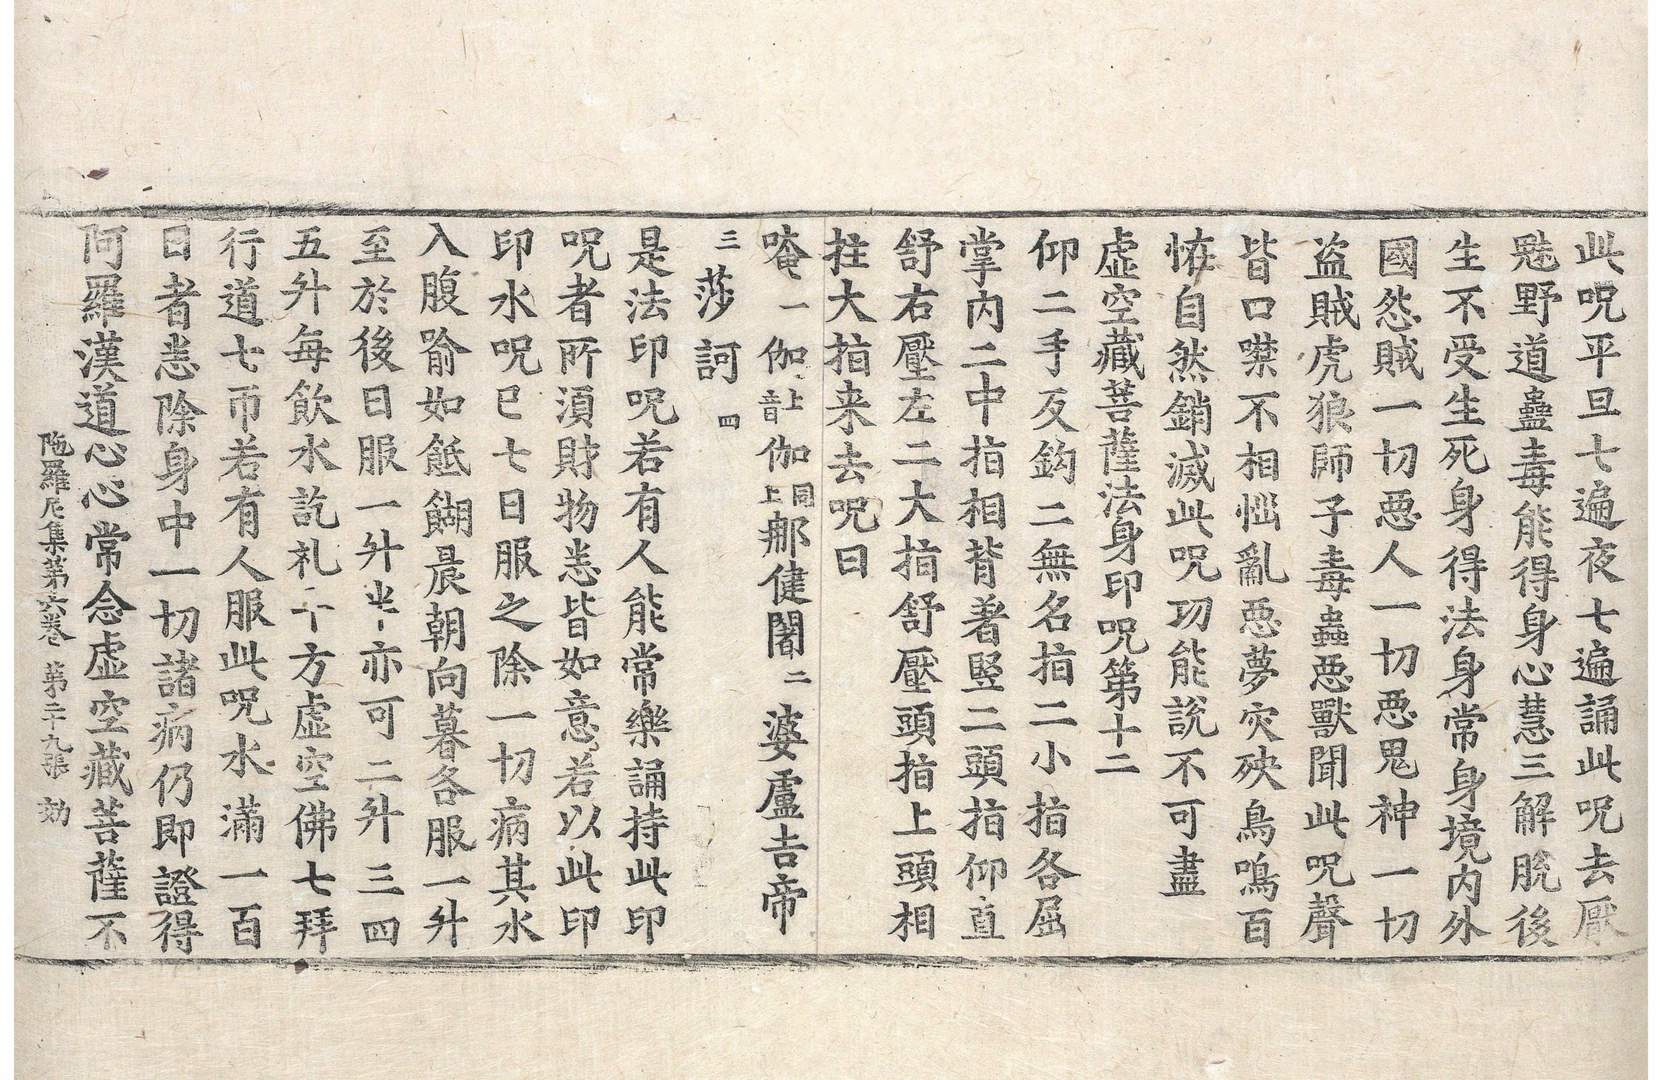 此呪平旦七遍夜七遍誦此呪去厭
魅野道蠱毒能得身心慧三解脫後
生不受生死身得法身常身境內外
國怨賊一切惡人一切惡鬼神一切
盜賊虎狼師子毒蟲惡獸聞此呪聲
皆口噤不相惱亂惡夢灾殃鳥鳴百
恠自然銷滅此呪功能說不可盡
虛空藏菩薩法身印呪第十二
仰二手反鈎二無名指二小指各屈
掌內二中指相背著竪二頭指仰直
舒右壓左二大指舒壓頭指上頭相
拄大指来去呪曰
唵一伽上音伽同上郍健闍二婆盧吉帝
三莎訶四
是法印呪若有人能常樂誦持此印
呪者所湏財物悉皆如意若以此印
印水呪巳七日服之除一切病其水
入腹喻如䬫餬晨朝向暮各服一升
至於後日服一升半亦可二升三四
五升每飲水訖礼十方虛空佛七拜
行道七帀若有人服此呪水滿一百
日者悉除身中一切諸病仍即證得
阿羅漢道心心常念虛空藏菩薩不
陁羅尼集第六卷 第二十九張 効